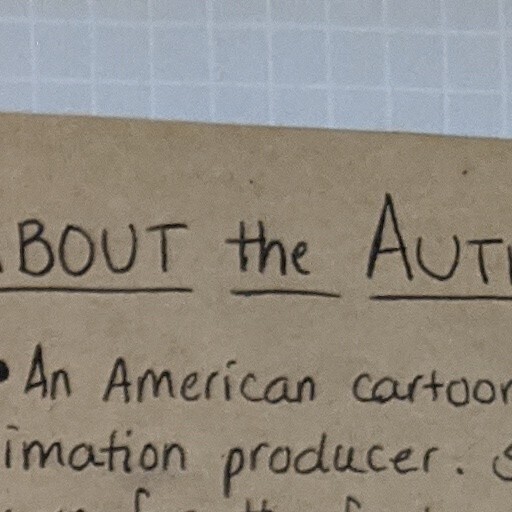 ABOUT the AUT
• An American cartoon
imation producer. S